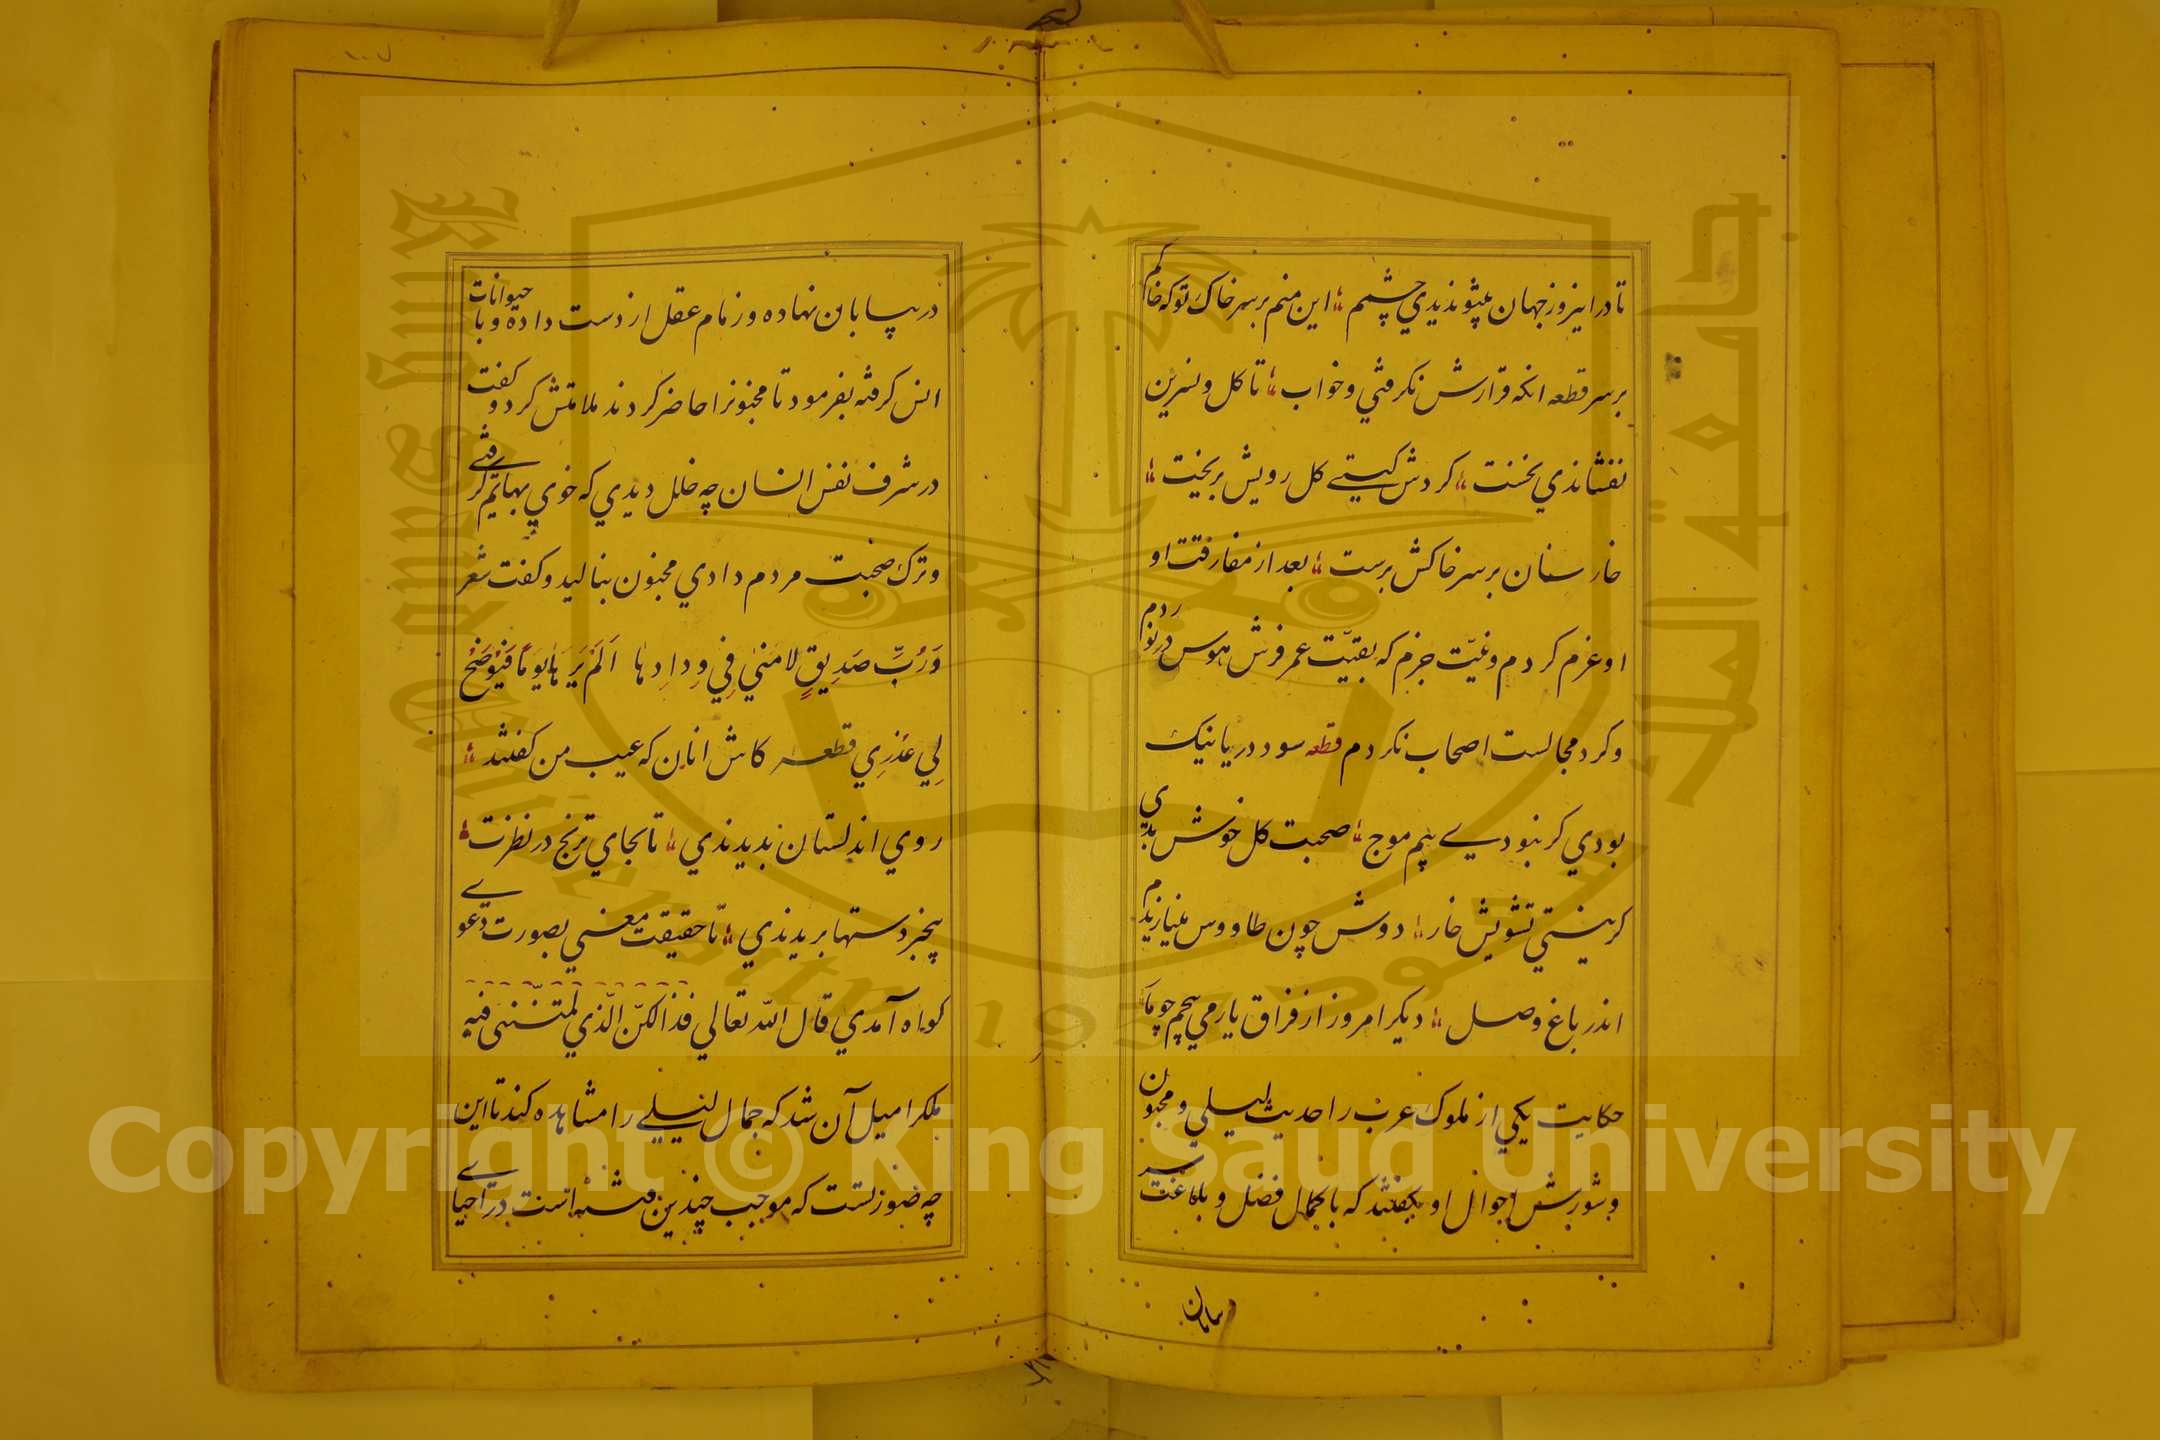 تا درین روز جهان بیتو ندیدی چشمم این منم بر سر خاک تو که خاکم
بر سر قطعه انکه قرارش نکرفتی و خواب تا کل و نسرین
نفشاندی نخست کردش کیتی کل رویش بریخت
خار بنان بر سر خاکش برست بعد از مفارقت او
او عزم کردم و نیت جزم که بقیت عمر فرش هوس در نوردم
و کرد مجالست اصحاب نکردم قطعه سود دریا نیک
بودی کر نبودی بیم موج صحبت کل خوش بدی
کر نیستی تشویش خار دوش چون طاووس مینازیدم
اندر باغ وصل دیکر امروز از فراق یار می پیچم چو مار
حکایت یکی از ملوک عرب را حدیث لیلی و مجنون
و شورش احوال او بکفتند که با کمال فضل و بلاغت سر
در بیابان نهاده و زمام عقل از دست داده و با حیوانات
انس کرفته بفرمود تا مجنونرا حاضر کردند ملامتش کرد و کفت
در شرف نفس انسان چه خلل دیدی که خوی بهایم کرفتی
و ترک صحبت مردم دادی مجنون بنالید و کفت شعر
وَرُبَّ صَدِیقٍ لامَنی فِی وِدادِها اَلَمْ یَرَها یَومًا فَیُوضَحُ
لِی عُذرِی قطعه کاش انان که عیب من کفتند
روی اندلستان بدیدندی تا بجای ترنج در نظرت
بیخبر دستها بریدندی تا حقیقت معنی بصورت دعوی
کواه آمدی قال الله تعالی فذالکن الذی لمتننی فیه
ملک را میل آن شد که جمال لیلی را مشاهده کند تا این
چه صورتست که موجب چندین فتنه است در احیای
King Saud University
جامعة الملك سعود
1957
Copyright © King Saud University